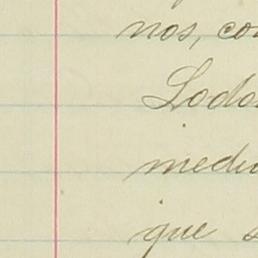 nos, co
Lodo
medi
que s